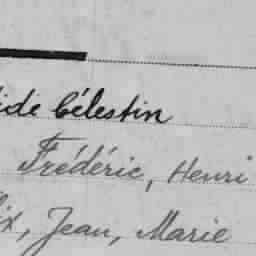 Célestin
Frédéric, Henri
Jean, Marie